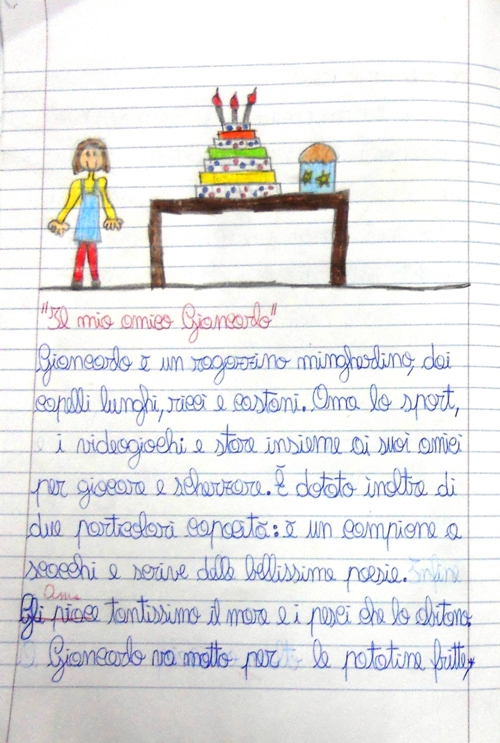 "Il mio amico Giancarlo"
Giancarlo è un ragazzino mingherlino, dai
capelli lunghi, ricci e castani. Ama lo sport,
i videogiochi e stare insieme ai suoi amici
per giocare e scherzare. È dotato inoltre di
due particolari capacità: è un campione a
scacchi e scrive delle bellissime poesie. Infine
Ama
Gli piace tantissimo il mare e i pesci che lo abitano,
Giancarlo va matto per le patatine fritte,